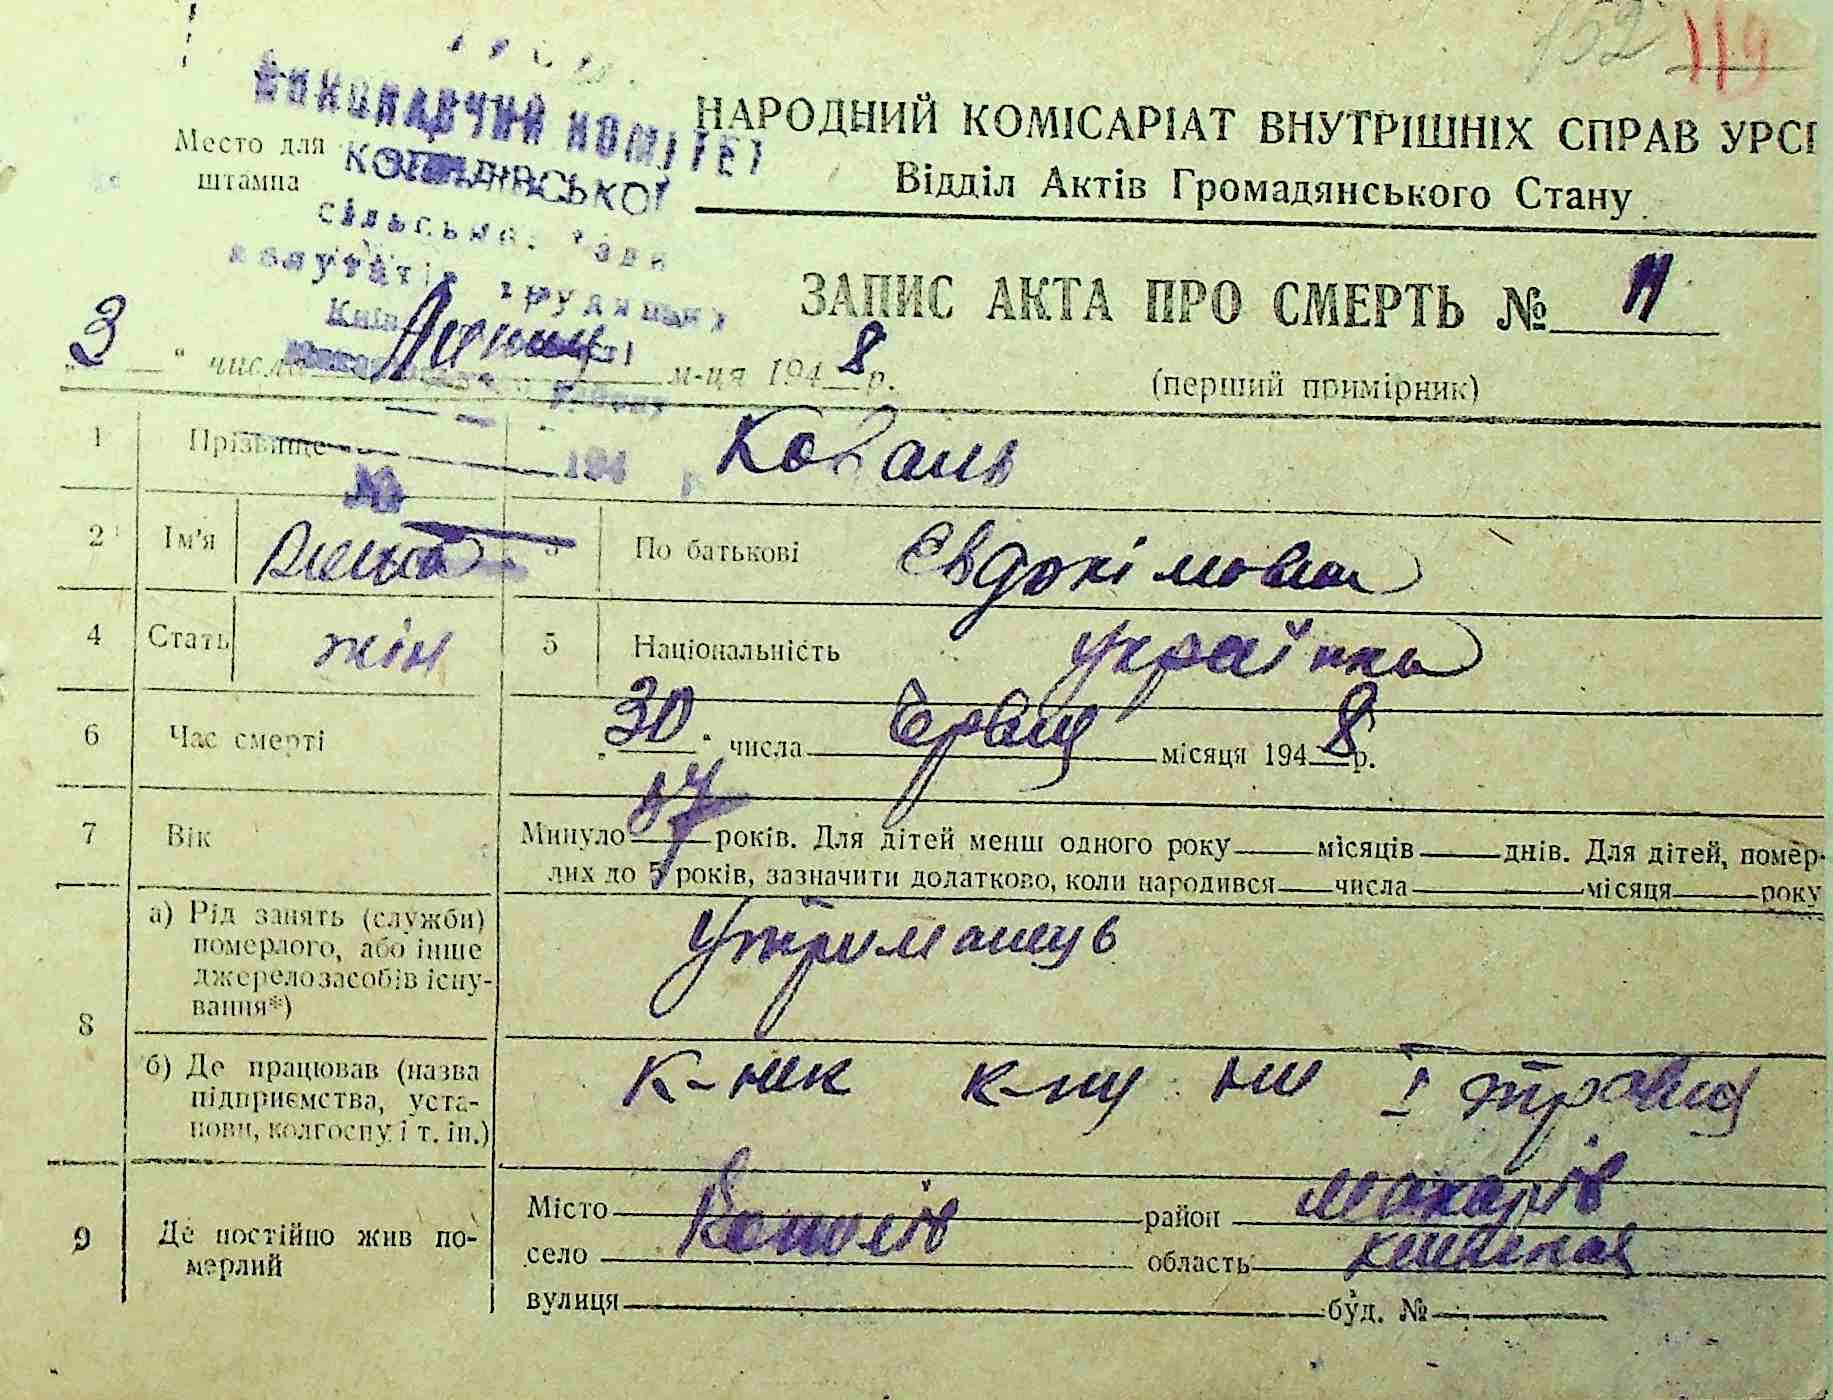 152 119
ВИКОНАВЧИЙ КОМІТЕТ
НАРОДНИЙ КОМІСАРІАТ ВНУТРІШНІХ СПРАВ УРСР
Место для
штампа
Відділ Актів Громадянського Стану
сільської ради
депутатів трудящих
ЗАПИС АКТА ПРО СМЕРТЬ № 11
„3“ числа Липня м-ця 1948 р.
(перший примірник)
1 Прізвище Коваль
194 р
№
2 Ім'я 3 По батькові Євдокімовна
4 Стать жін 5 Національність українка
6 Час смерті „30“ числа Червня місяця 1948 р.
7 Вік Минуло років. Для дітей менш одного року місяців днів. Для дітей, помер-
лих до 5 років, зазначити додатково, коли народився числа місяця року
8 а) Рід занять (служби)
померлого, або інше
джерело засобів існу-
вання*)
Утриманець
б) Де працював (назва
підприємства, уста-
нови, колгоспу і т. ін.)
к-ник к-пу 1 травня
9 Де постійно жив по-
мерлий
Місто район Макарів
село область Київська
вулиця буд. №